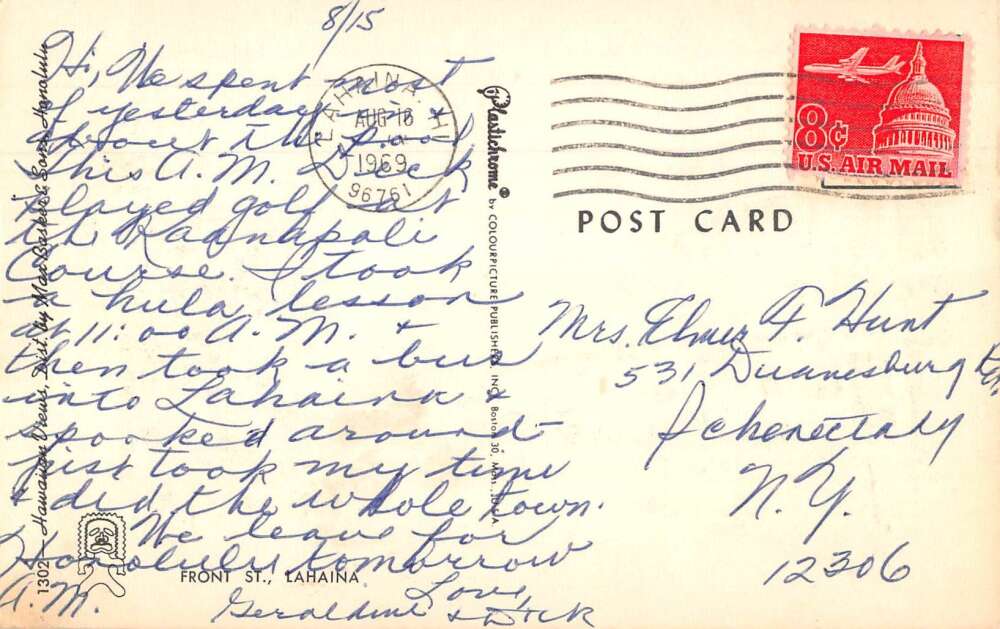 8/15
Hi, We spent most
of yesterday in &
about the pool
This A.M. Dick
played golf at
the Kaanapali
Course. I took
a hula lesson
at 11:00 A.M. &
then took a bus
into Lahaina &
spooked around-
just took my time
& did the whole town.
We leave for
Honolulu tomorrow
A.M.
Love,
Geraldine & Dick
1302 — Hawaiian Views, Dist. by Max Basker & Sons, Honolulu
FRONT ST., LAHAINA
Plastichrome® by COLOURPICTURE PUBLISHERS, INC. Boston 30, Mass., U.S.A.
LAHAINA, HI
AUG 16
1969
96761
8¢
U.S. AIR MAIL
POST CARD
Mrs. Elmer F. Hunt
531 Duanesburg Rd.
Schenectady
N.Y.
12306